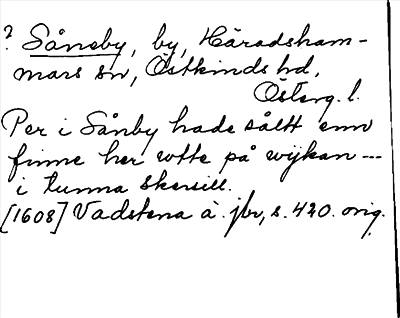 ? Sånsby, by, Häradsham-
mars sn, Östkinds hd,
Österg. l.
Per i Sånby hade såltt enn
finne her wtte på wijkan ---
i tunna skersill.
[1608] Vadstena ä. jbr, s. 420. orig.